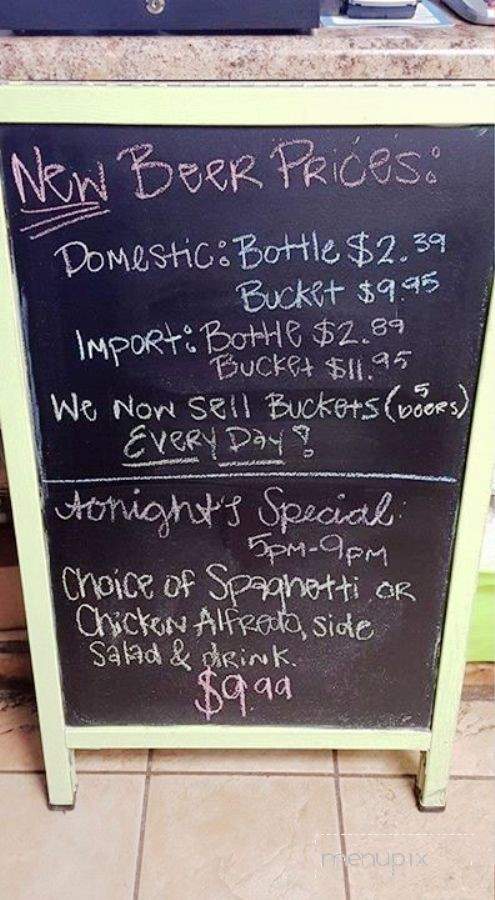 New Beer Prices:
Domestic: Bottle $2.39
Bucket $9.95
Import: Bottle $2.89
Bucket $11.95
We Now Sell Buckets (5 beers)
Every Day!
tonight's Special:
5pm-9pm
Choice of Spaghetti OR
Chicken Alfredo, side
Salad & drink.
$9.99
menupix